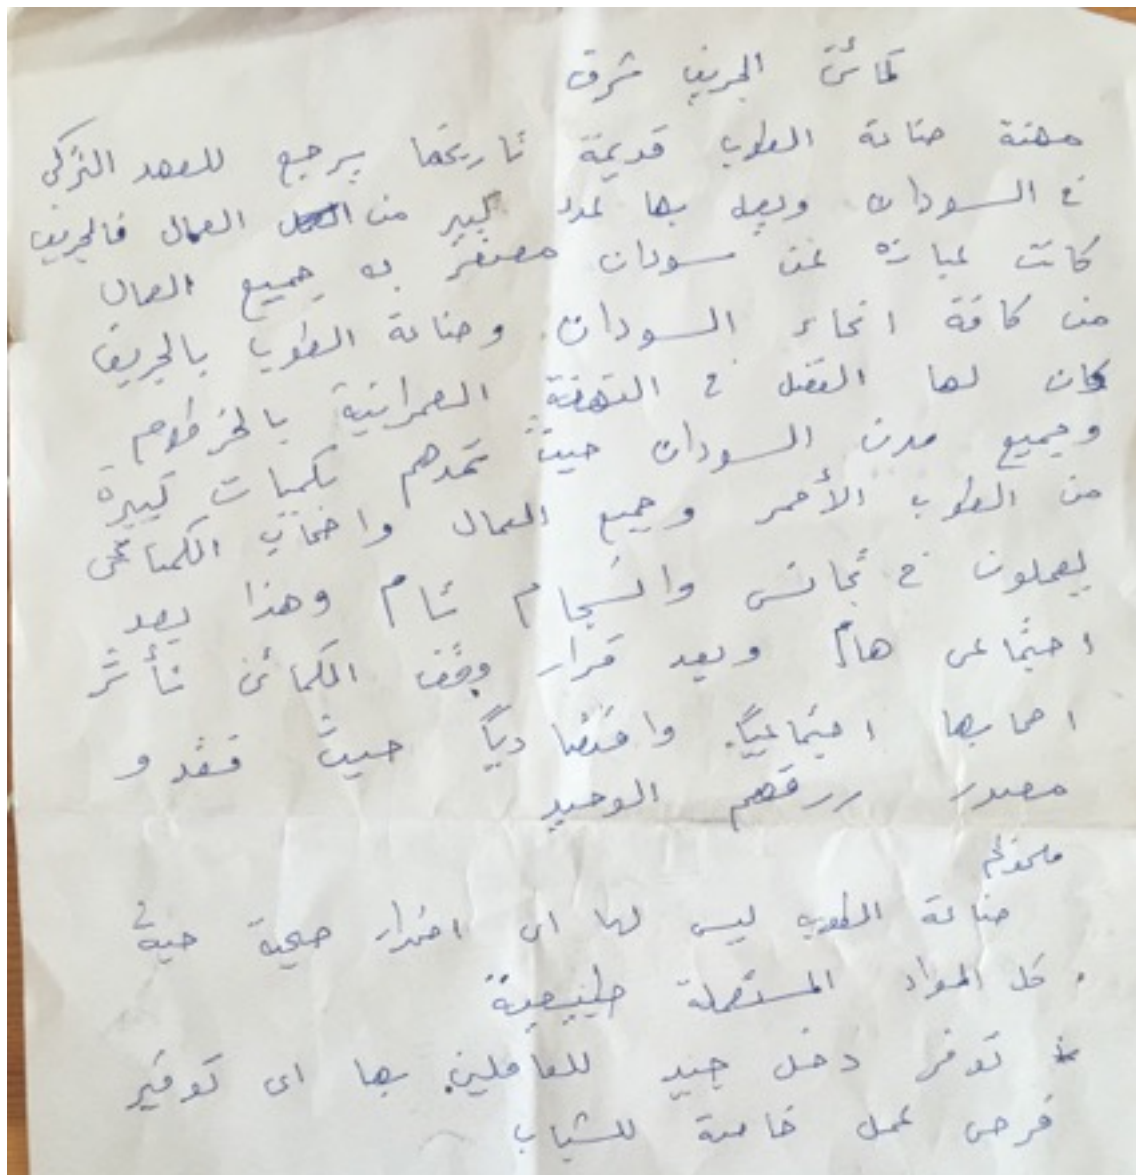 كمائن الجريف شرق
مهنة صناعة الطوب قديمة تاريخها يرجع للعهد التركي
في السودان ويعمل بها عدد كبير من العمال فالجريف
كانت عبارة عن سودان مصغر به جميع العمال
من كافة انحاء السودان وصناعة الطوب بالجريف
كان لها الفضل في النهضة العمرانية بالخرطوم
وجميع مدن السودان حيث تمدهم بكميات كبيرة
من الطوب الأحمر وجميع العمال واصحاب الكمائن
يعملون في تجانس وانسجام تام وهذا يعد
اجتماعى هام وبعد قرار وقف الكمائن تأثر
اصحابها اجتماعياً واقتصادياً حيث فقدو
مصدر رزقهم الوحيد
صناعة الطوب ليس لها اى اضرار صحية حيث
كل المواد المستعملة طبيعية
* توفر دخل جيد للعاملين بها اى توفير
فرص عمل خاصة للشباب